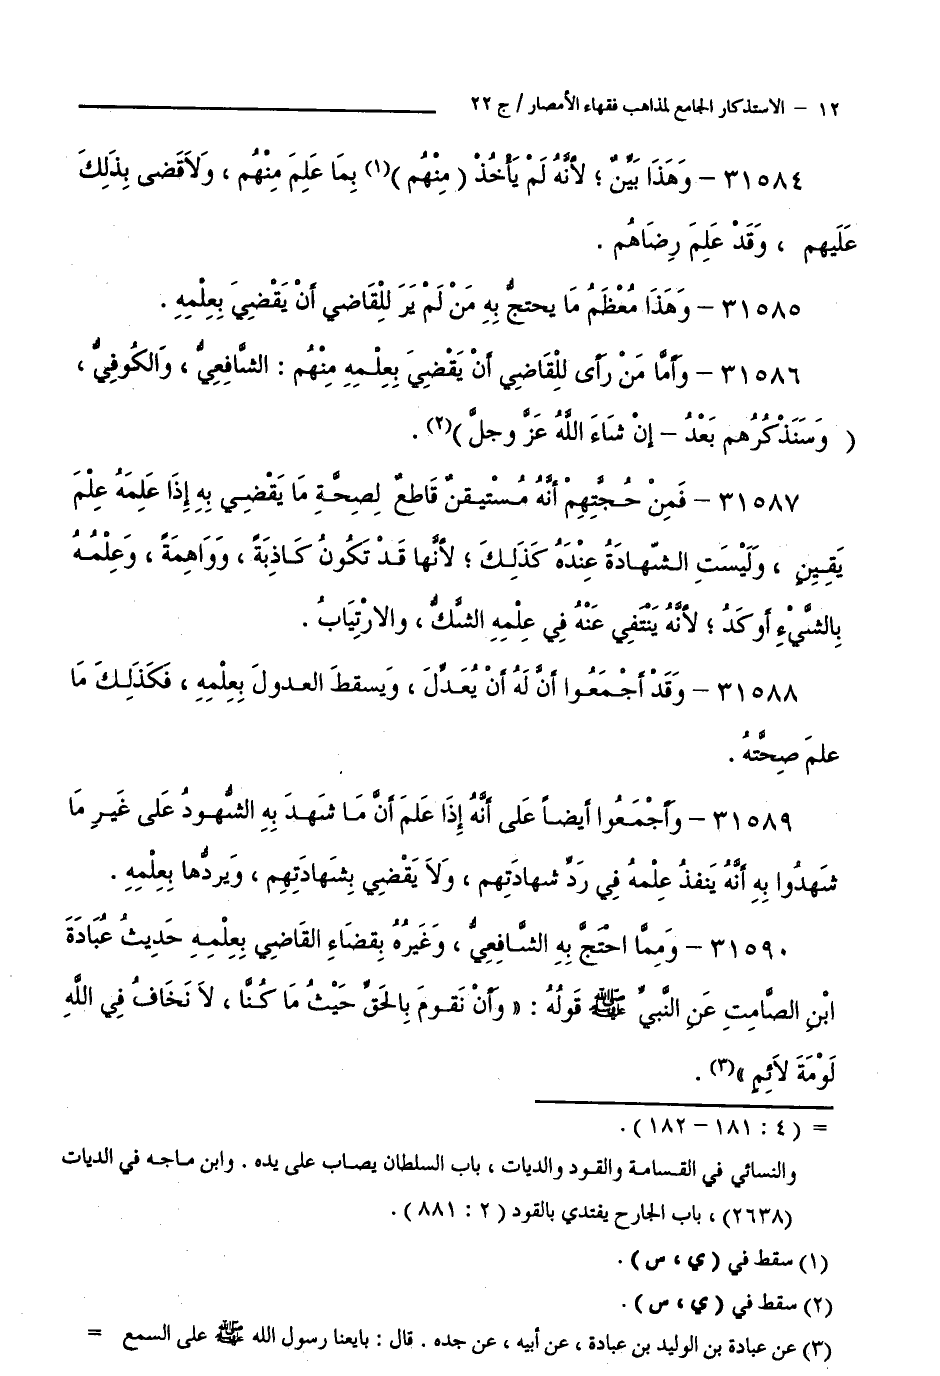 ١٢ – الاستذكار الجامع لمذاهب فقهاء الأمصار / ج ٢٢
٣١٥٨٤ – وَهَذَا بَيِّنٌ ؛ لأَنَّهُ لَمْ يَأْخُذْ ( مِنْهُم )(١) بِمَا عَلِمَ مِنْهُم ، وَلاَقَضى بِذَلِكَ
عَلَيهم ، وَقَدْ عَلِمَ رِضَاهُم .
٣١٥٨٥ – وَهَذَا مُعْظَمُ مَا يحتجُّ بِهِ مَنْ لَمْ يَرَ لِلْقَاضي أَنْ يَقْضِيَ بِعِلْمِهِ .
٣١٥٨٦ – وَأَمَّا مَنْ رَأى لِلْقَاضِي أَنْ يَقْضِيَ بِعِلْمِهِ مِنْهُم : الشَّافِعِيُّ ، وَالكُوفِيُّ ،
( وَسَنَذْكُرُهم بَعْدُ – إنْ شَاءَ اللَّهُ عَزَّ وجلَّ )(٢) .
٣١٥٨٧ – فَمِنْ حُجَّتِهِمْ أَنَّهُ مُسْتَيقنٌ قَاطعٌ لِصحَّةِ مَا يَقْضِي بِهِ إِذَا عَلِمَهُ عِلْمَ
يَقِينٍ ، وَلَيْسَتِ الشّهادَةُ عِنْدَهُ كَذَلِكَ ؛ لأَنَّها قَدْ تَكُونُ كَاذِبَةً ، وَوَاهِمَةً ، وَعِلْمُهُ
بِالشَّيْءِ أَوكَدُ ؛ لأَنَّهُ يَنْتَفِي عَنْهُ فِي عِلْمِهِ الشكُّ ، والارْتِيَابُ .
٣١٥٨٨ – وَقَدْ أَجْمَعُوا أَنَّ لَهُ أَنْ يُعَدِّلَ ، وَيسقطَ العدولَ بِعِلْمِهِ ، فَكَذَلِكَ مَا
علمَ صِحَّتهُ .
٣١٥٨٩ – وَأَجْمَعُوا أَيضاً عَلى أَنَّهُ إِذَا عَلمَ أَنَّ مَا شهدَ بِهِ الشُّهودُ عَلى غَيرِ مَا
شَهدُوا بِهِ أَنَّهُ يَنفذُ عِلْمهُ فِي رَدِّ شهادَتِهم ، وَلاَ يَقْضِي بِشَهادَتِهِم ، وَيردُّها بِعِلْمِهِ .
٣١٥٩٠ – وَمِمَّا احْتَجَّ بِهِ الشَّافِعِيُّ ، وَغَيرُهُ بِقضَاءِ القَاضِي بِعِلْمِهِ حَدِيثُ عُبَادَةَ
ابْنِ الصَّامِتِ عَنِ النَّبِيِّ ﷺ قَولُهُ : « وَأَنْ نَقومَ بِالحَقِّ حَيْثُ مَا كُنَّا ، لاَ نَخَافُ فِي اللَّهِ
لَوْمَةَ لاَئِمٍ »(٣) .
= ( ٤ : ١٨١ – ١٨٢ ) .
والنسائي في القسامة والقود والديات ، باب السلطان يصاب على يده . وابن ماجه في الديات
(٢٦٣٨) ، باب الجارح يفتدي بالقود ( ٢ : ٨٨١ ) .
(١) سقط في ( ي ، س ) .
(٢) سقط في ( ي ، س ) .
(٣) عن عبادة بن الوليد بن عبادة ، عن أبيه ، عن جده . قال : بايعنا رسول الله ﷺ على السمع =